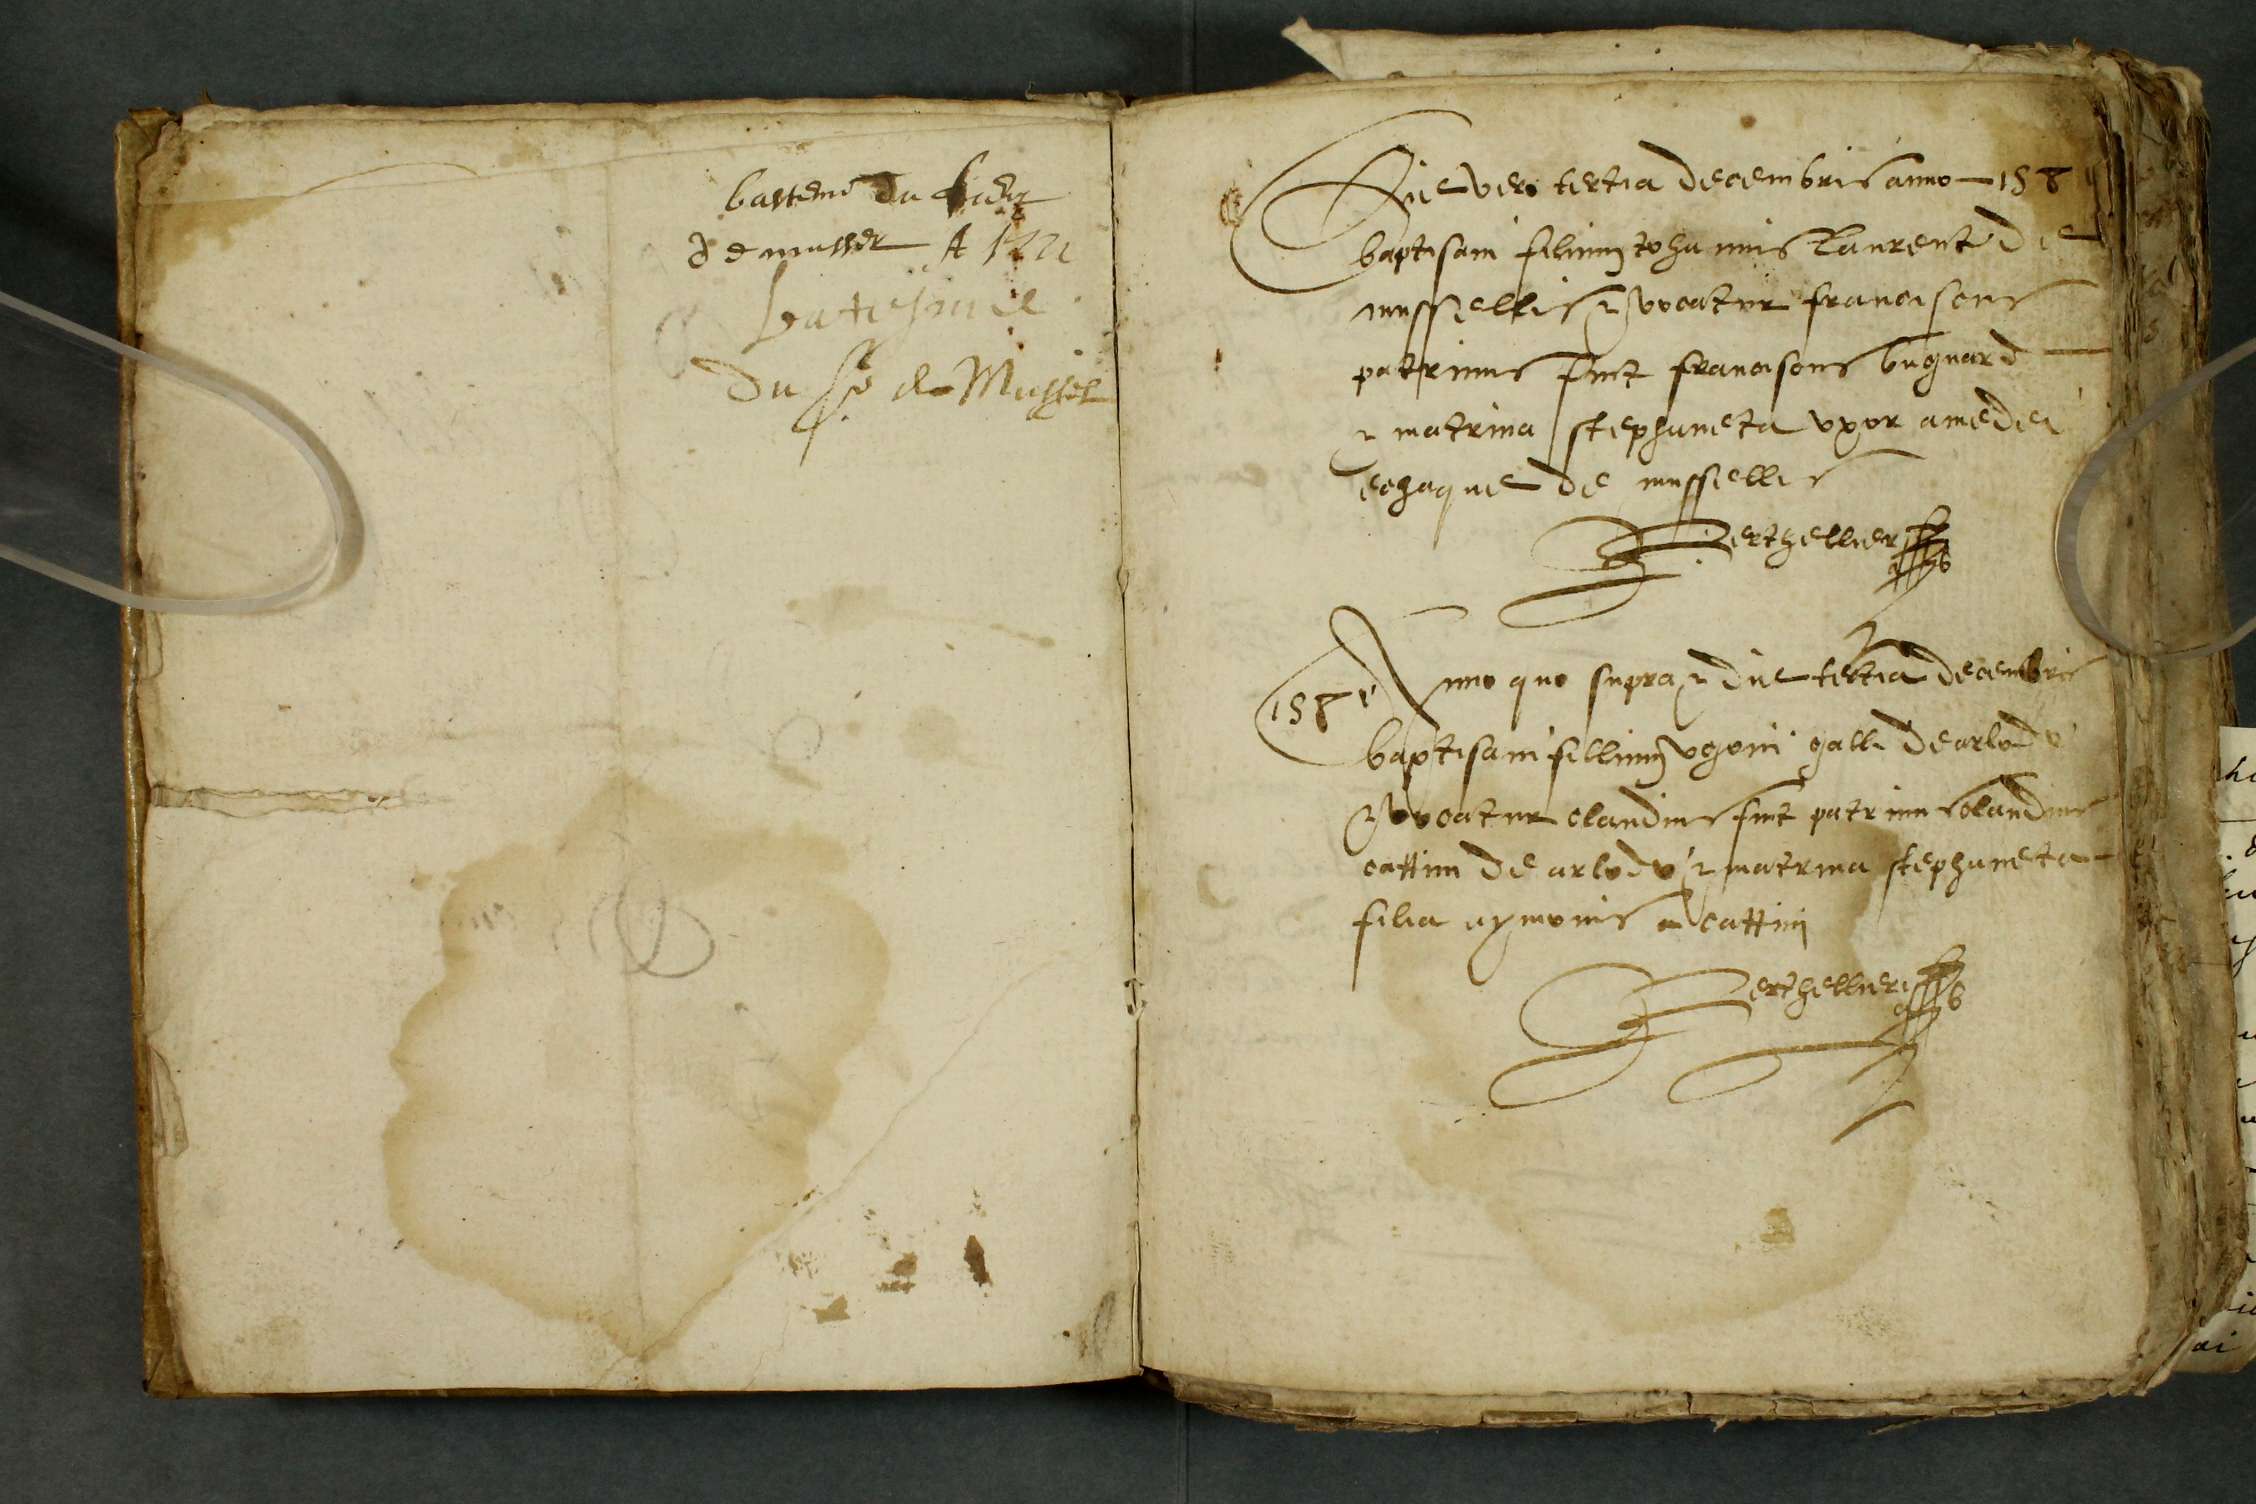 bastem du
de musser A
batesme
du sr de Mussel
Die vero tertia decembris anno 158i
baptisavi filium Johannis Laurent de
mussiellis & vocatur franciscus
patrinus fuit franciscus bugnard
& matrina stephaneta uxor amedei
echaque de mussellis
Berthellier
158i Anno quo supra & die tertia decembris
baptisavi fillium ugoni galli de arlodo
& vocatur claudius fuit patrinus claudius
cattini de arlodo & matrina stephaneta
filia aymonis cattini
Berthellier